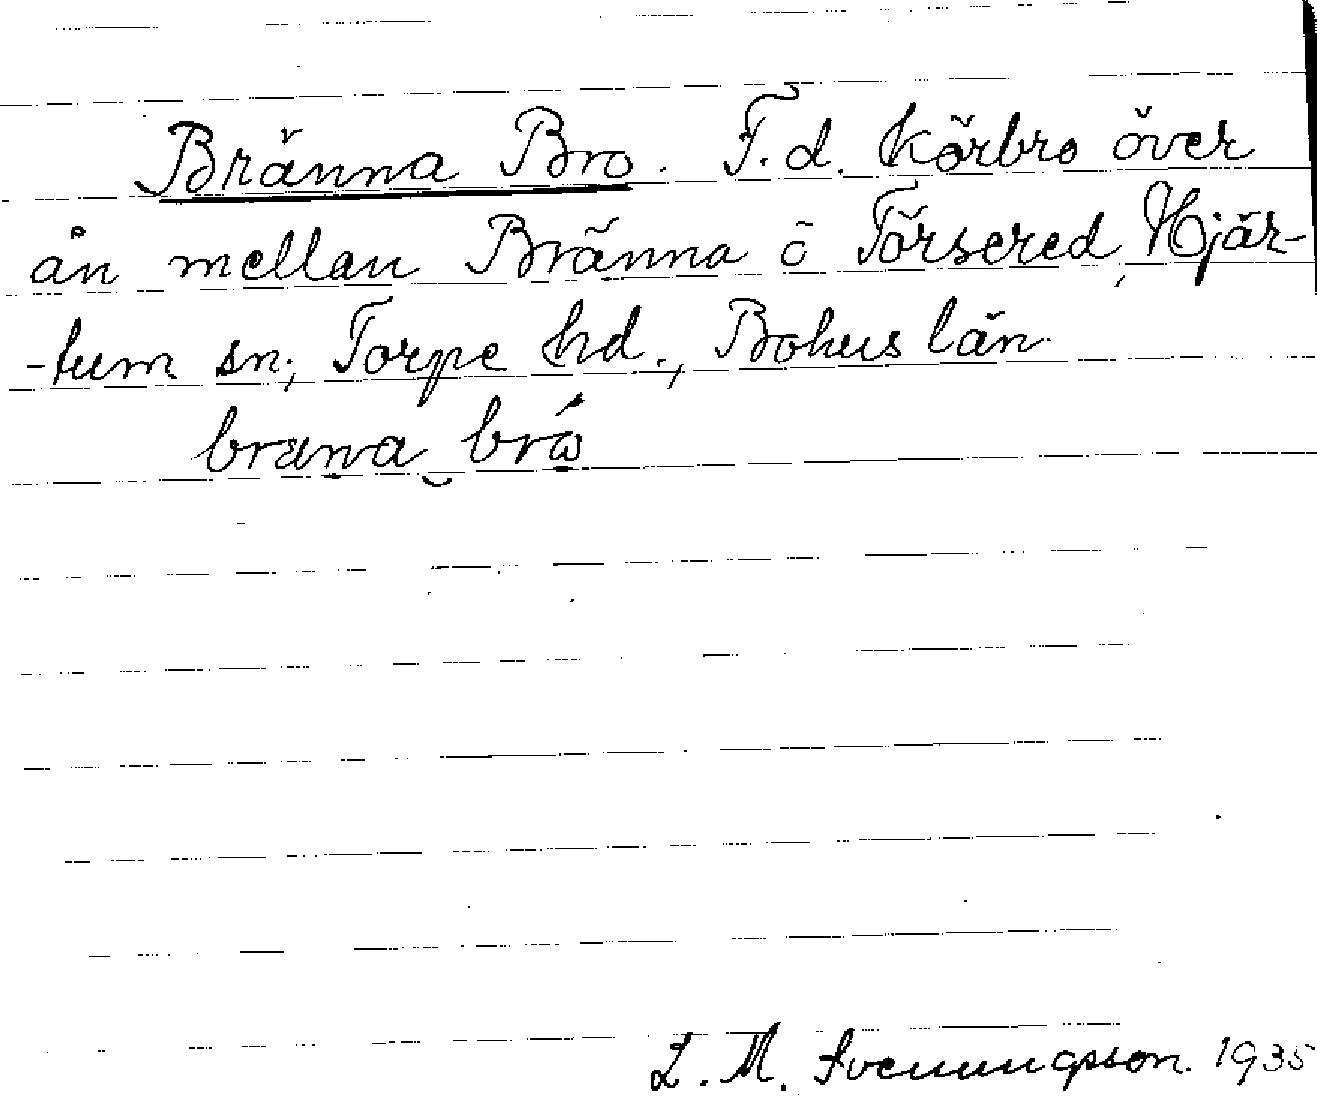 Bränna Bro. F.d. körbro över
ån mellan Bränna o Törsered, Hjär-
-tum sn., Torpe hd., Bohus län.
bräna bró
L. M. Svenungsson. 1935